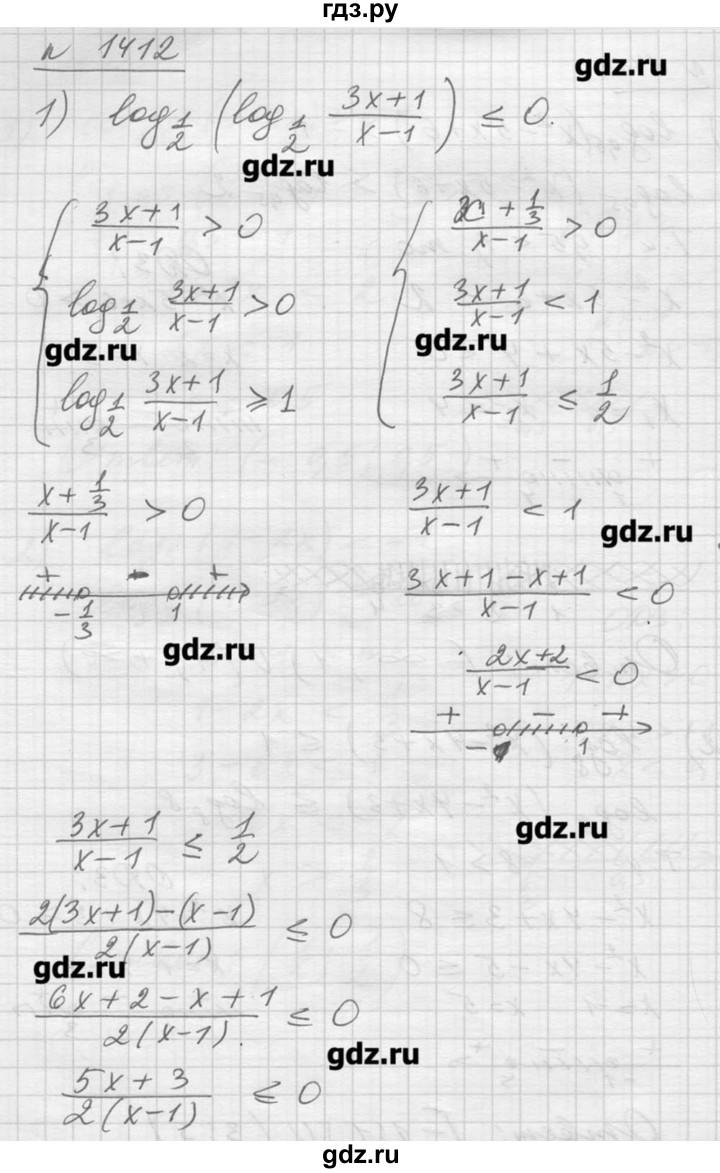 гдз.ру
n 1412
gdz.ru
1) log_{1/2} (log_{1/2} (3x+1)/(x-1)) ≤ 0.
gdz.ru
(3x+1)/(x-1) > 0
log_{1/2} (3x+1)/(x-1) > 0
gdz.ru
log_{1/2} (3x+1)/(x-1) ≥ 1
(x + 1/3)/(x-1) > 0
(3x+1)/(x-1) < 1
gdz.ru
(3x+1)/(x-1) ≤ 1/2
(x + 1/3)/(x-1) > 0
+ - +
-1/3 1
gdz.ru
(3x+1)/(x-1) < 1
gdz.ru
(3x+1-x+1)/(x-1) < 0
(2x+2)/(x-1) < 0
+ - +
- 1
(3x+1)/(x-1) ≤ 1/2
gdz.ru
(2(3x+1)-(x-1))/(2(x-1)) ≤ 0
gdz.ru
(6x+2-x+1)/(2(x-1)) ≤ 0
gdz.ru
(5x+3)/(2(x-1)) ≤ 0
gdz.ru